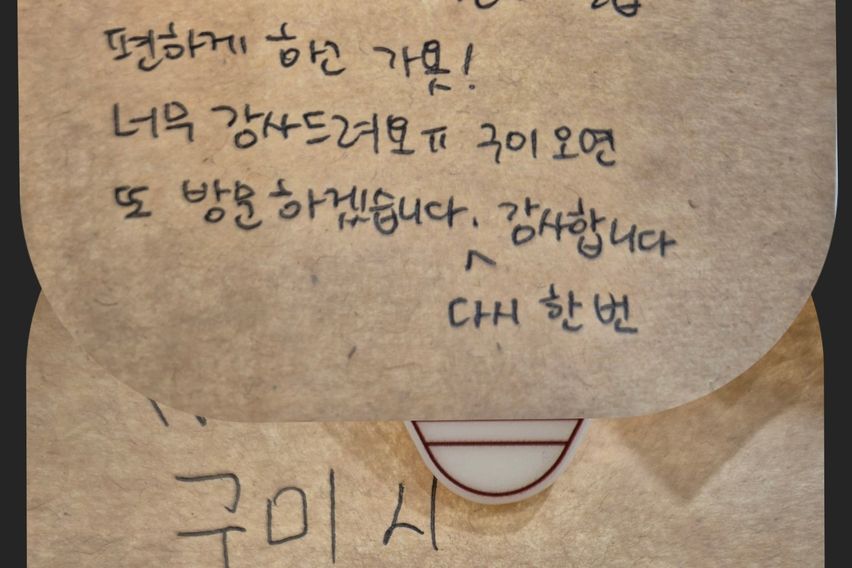 편하게 하고 가욧!
너무 감사드려요ㅠ 구이오연
또 방문하겠습니다. 감사합니다
^
다시 한번
구미시